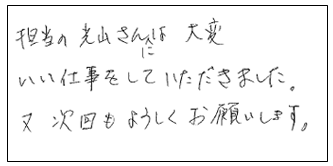 担当の光山さんには大変
いい仕事をしていただきました。
又次回もようしくお願いします。